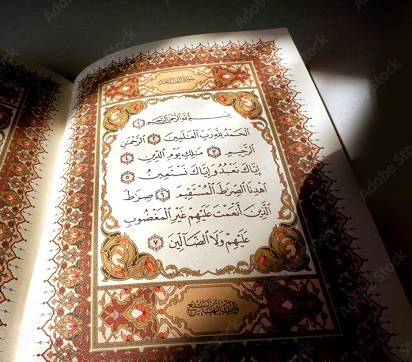 سُورَةُ الفَاتِحَةِ
بِسْمِ ٱللَّهِ ٱلرَّحْمَٰنِ ٱلرَّحِيمِ ١
ٱلْحَمْدُ لِلَّهِ رَبِّ ٱلْعَٰلَمِينَ ٢ ٱلرَّحْمَٰنِ
ٱلرَّحِيمِ ٣ مَٰلِكِ يَوْمِ ٱلدِّينِ ٤
إِيَّاكَ نَعْبُدُ وَإِيَّاكَ نَسْتَعِينُ ٥
ٱهْدِنَا ٱلصِّرَٰطَ ٱلْمُسْتَقِيمَ ٦ صِرَٰطَ
ٱلَّذِينَ أَنْعَمْتَ عَلَيْهِمْ غَيْرِ ٱلْمَغْضُوبِ
عَلَيْهِمْ وَلَا ٱلضَّآلِّينَ ٧
Adobe Stock